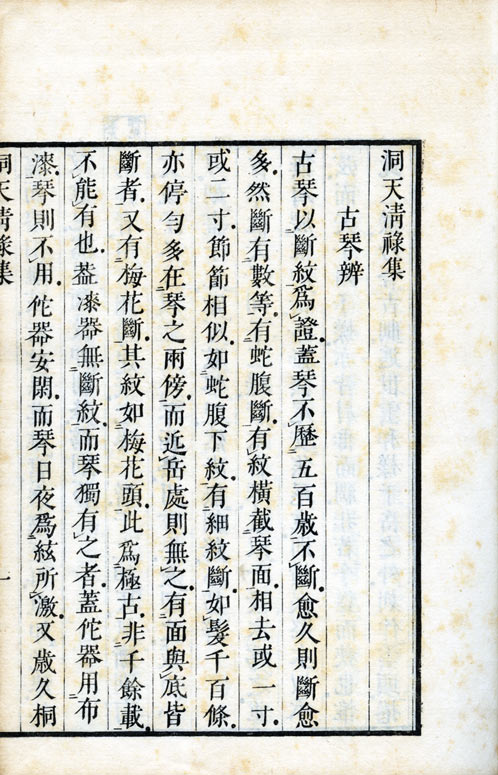 洞天清祿集
古琴辨
古琴以斷紋爲證蓋琴不歷五百歲不斷愈久則斷愈
多然斷有數等有蛇腹斷有紋橫截琴面相去或一寸
或二寸節節相似如蛇腹下紋有細紋斷如髮千百條
亦停勻多在琴之兩傍而近岳處則無之有面與底皆
斷者又有梅花斷其紋如梅花頭此爲極古非千餘載
不能有也葢漆器無斷紋而琴獨有之者蓋佗器用布
漆琴則不用佗器安閑而琴日夜爲絃所激又歲久桐
洞天清祿集
一